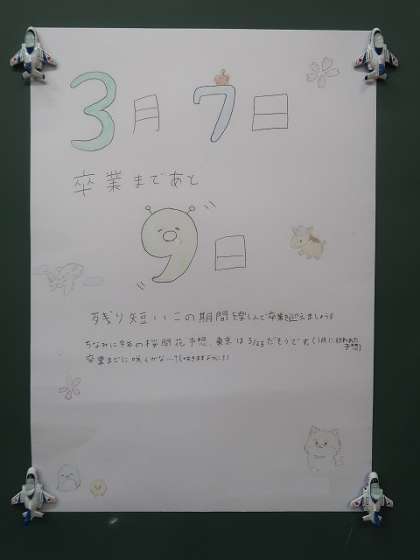 3月7日
卒業まであと
9日
残り短いこの期間楽しんで卒業を迎えましょう
ちなみに今年の桜開花予想、東京は3/23だそうです
卒業までに咲くかな…?(咲きますように!)